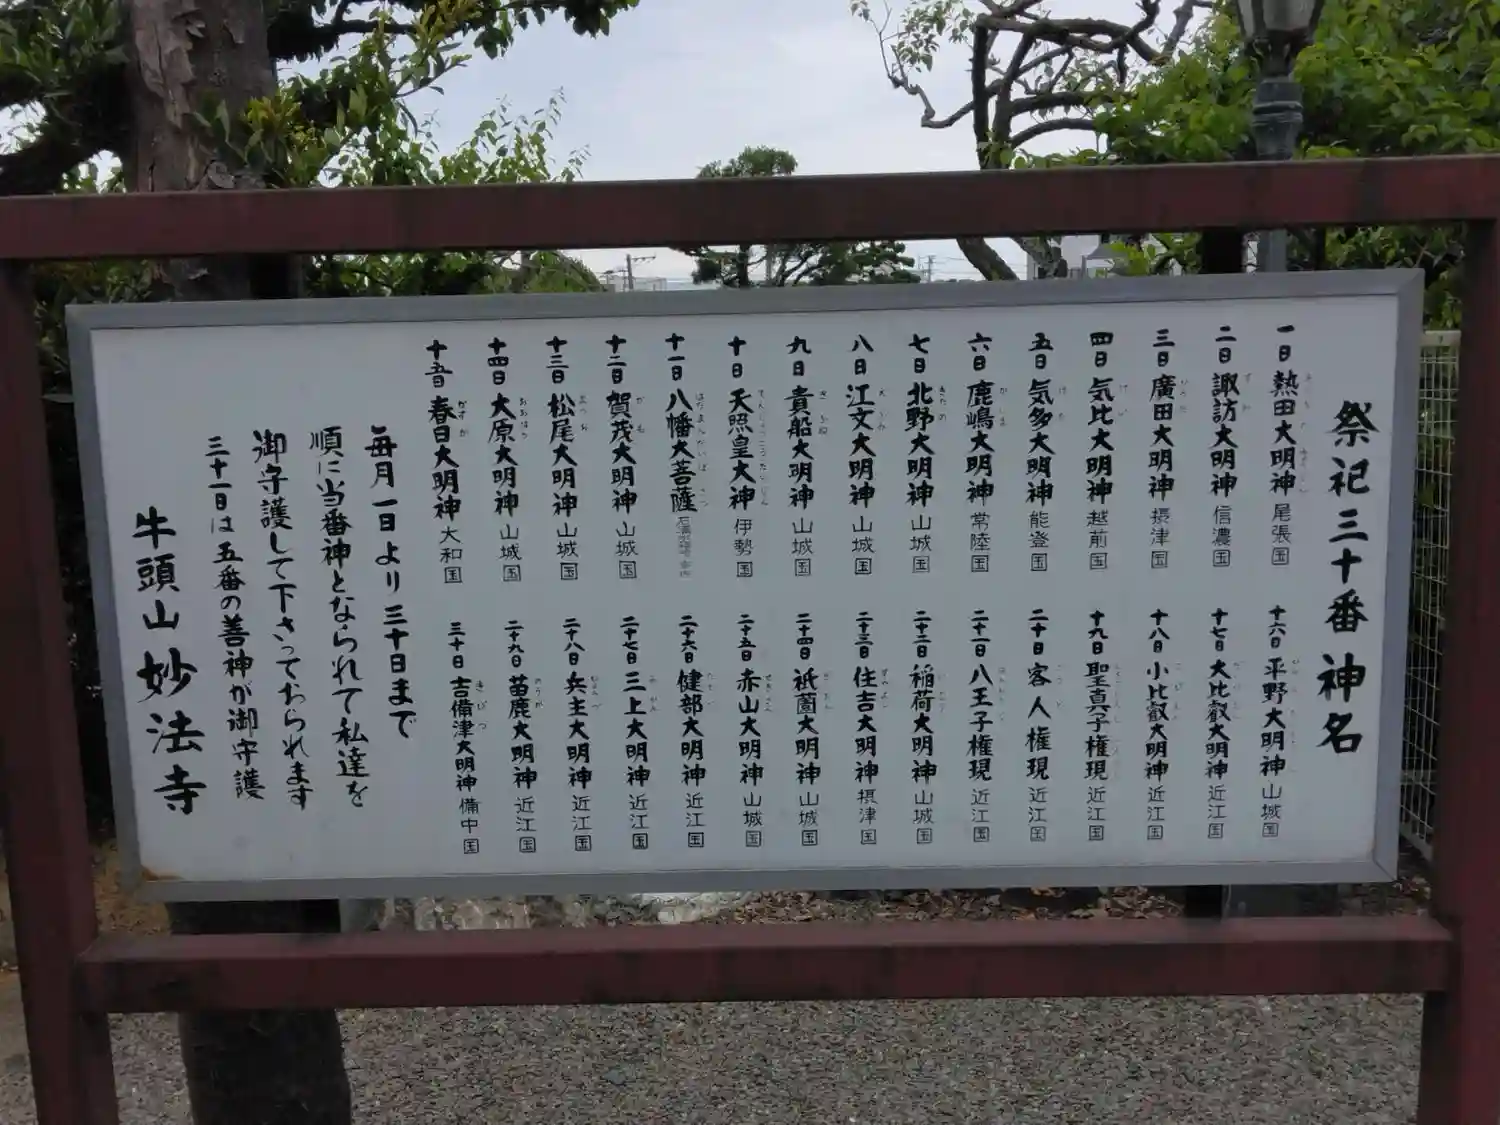 祭祀三十番神名
一日 熱田大明神 尾張国
二日 諏訪大明神 信濃国
三日 廣田大明神 摂津国
四日 気比大明神 越前国
五日 気多大明神 能登国
六日 鹿嶋大明神 常陸国
七日 北野大明神 山城国
八日 江文大明神 山城国
九日 貴船大明神 山城国
十日 天照皇大神 伊勢国
十一日 八幡大菩薩
十二日 賀茂大明神 山城国
十三日 松尾大明神 山城国
十四日 大原大明神 山城国
十五日 春日大明神 大和国
十六日 平野大明神 山城国
十七日 大比叡大明神 近江国
十八日 小比叡大明神 近江国
十九日 聖真子権現 近江国
二十日 客人権現 近江国
二十一日 八王子権現 近江国
二十二日 稲荷大明神 山城国
二十三日 住吉大明神 摂津国
二十四日 祇園大明神 山城国
二十五日 赤山大明神 山城国
二十六日 健部大明神 近江国
二十七日 三上大明神 近江国
二十八日 兵主大明神 近江国
二十九日 苗鹿大明神 近江国
三十日 吉備津大明神 備中国
毎月一日より三十日まで
順に当番神となられて私達を
御守護して下さっておられます
三十一日は五番の善神が御守護
牛頭山妙法寺